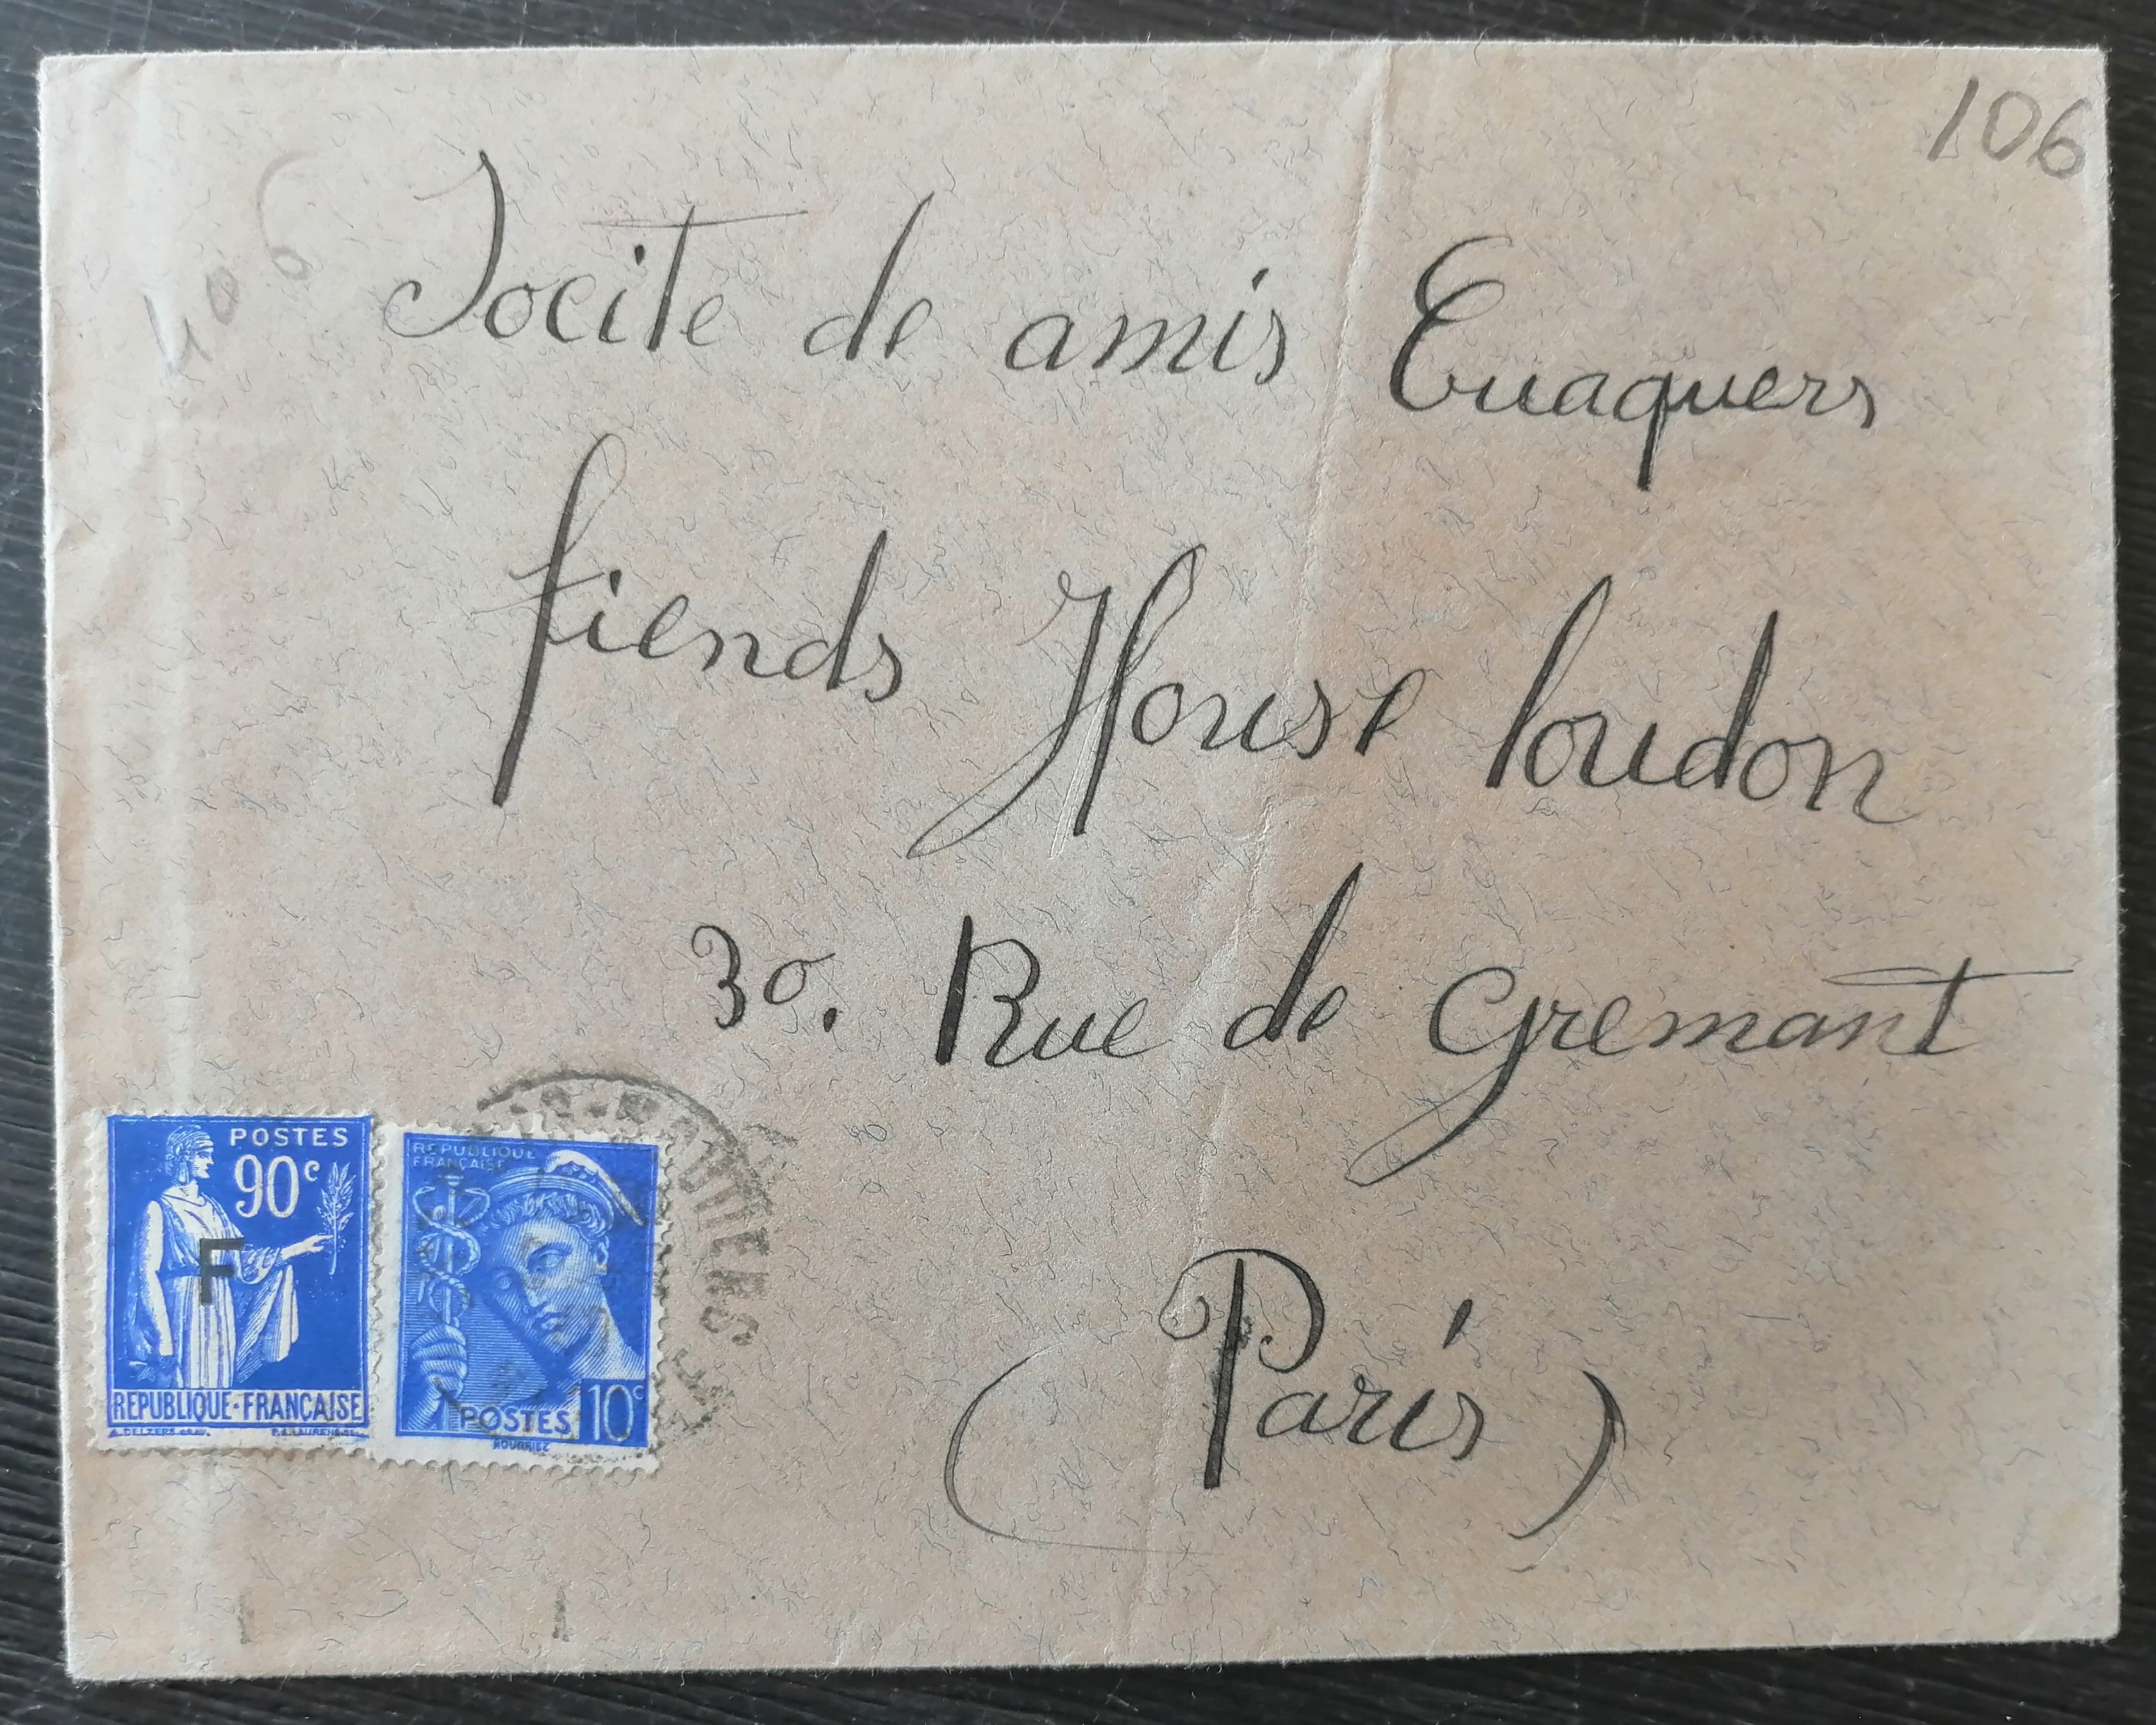 106
Socite de amis Cuaquers
fiends House loudon
30. Rue de Gremant
(Paris)
POSTES
90c
F
REPUBLIQUE-FRANCAISE
REPUBLIQUE
FRANÇAISE
POSTES 10c